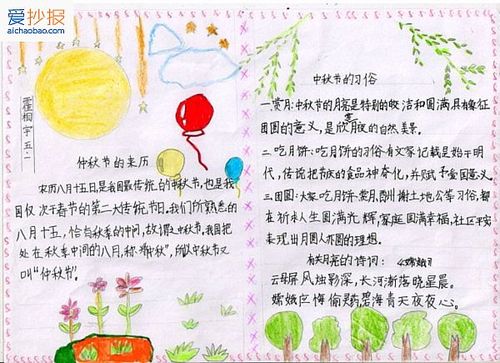 爱抄报
aichaobao.com
霍相宇 五·二
仲秋节的来历
农历八月十五日是我国最传统的中秋节,也是我
国仅次于春节的第二大传统节日。我们所熟悉的
八月十五,恰当秋季的中间,故谓之中秋节。我国把
处在秋季中间的八月,称谓"仲秋",所以中秋节又
叫"仲秋节"。
中秋节的习俗
一.赏月:中秋节的月亮是特别的皎洁和圆满,具有象征
团圆的意义,是欣赏月夜的自然美景。
二.吃月饼:吃月饼的习俗有文字记载是始于明
代,传说把节令的食品神奇化,并赋予爱国意义。
三.团圆:大家吃月饼、赏月,酬谢土地公等习俗,都
在祈求人生圆满光辉,家庭圆满幸福,社区平安
来现出月圆人亦圆的理想。
有关月亮的诗词:《嫦娥》
云母屏风烛影深,长河渐落晓星晨。
嫦娥应悔偷药,碧海青天夜夜心。